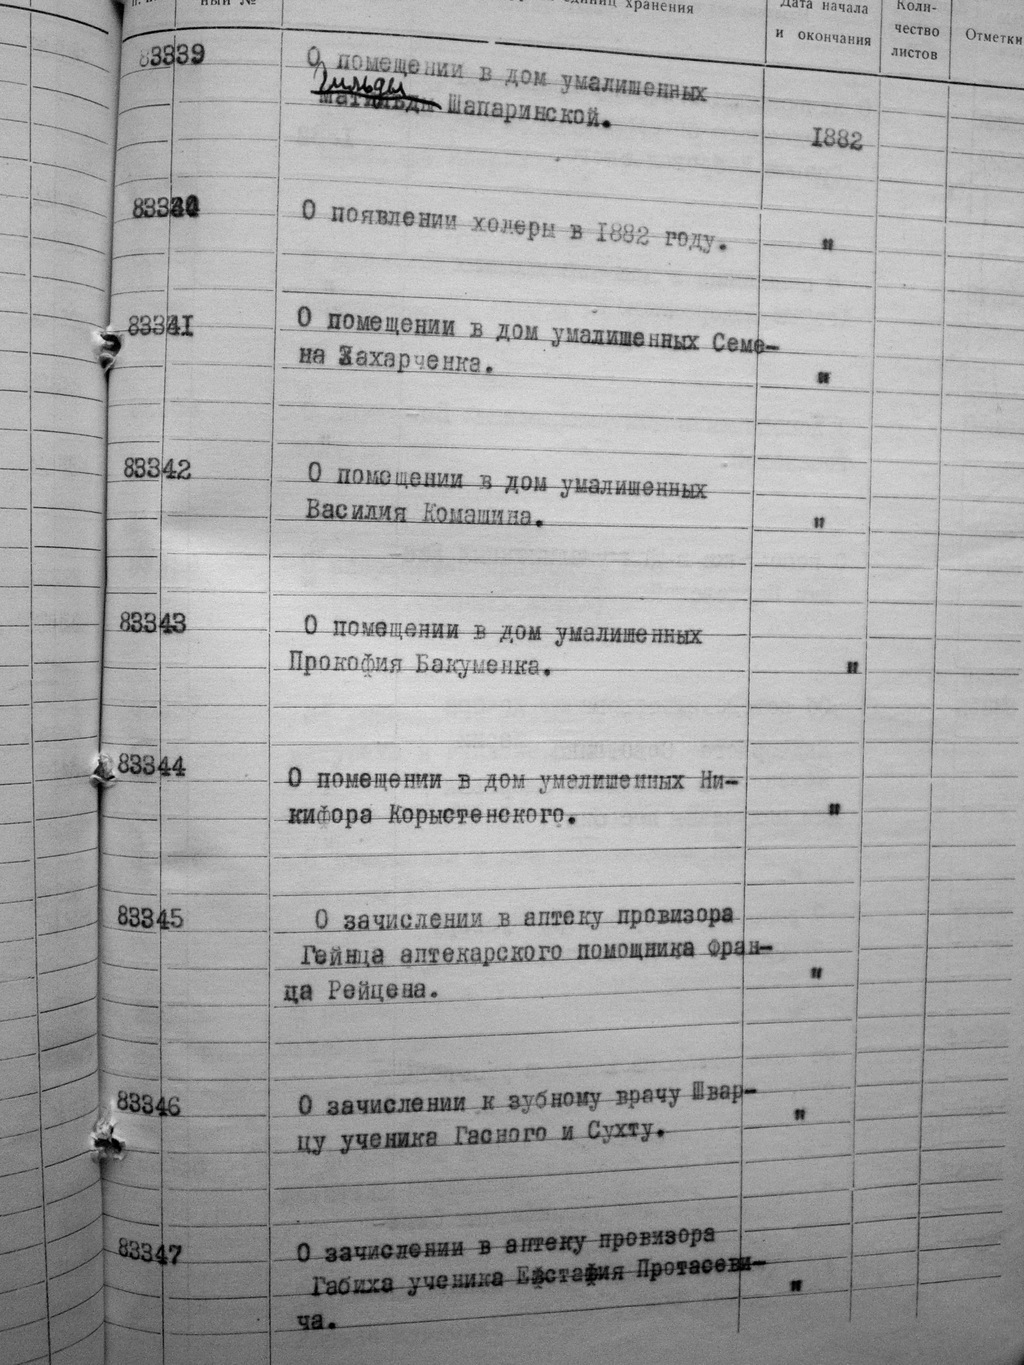 ный №
единиц хранения
Дата начала
и окончания
Коли-
чество
листов
Отметки
83339
О помещении в дом умалишенных
Гильды
Матильды Шапаринской.
1882
83340
О появлении холеры в 1882 году.
"
83341
О помещении в дом умалишенных Семе-
на Захарченка.
"
83342
О помещении в дом умалишенных
Василия Комашина.
"
83343
О помещении в дом умалишенных
Прокофия Бакуменка.
"
83344
О помещении в дом умалишенных Ни-
кифора Корыстенского.
"
83345
О зачислении в аптеку провизора
Гейнца аптекарского помощника Фран-
ца Рейцена.
"
83346
О зачислении к зубному врачу Швар-
цу ученика Гасного и Сухту.
"
83347
О зачислении в аптеку провизора
Габиха ученика Евстафия Протасеви-
ча.
"